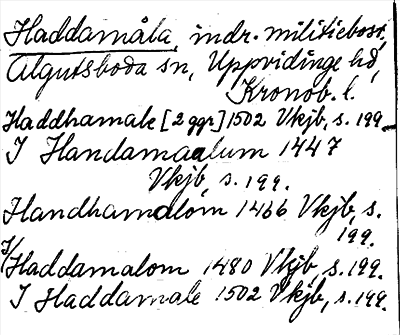 Haddamåla, indr. militiebost,
Algutsboda sn, Uppvidinge hd,
Kronob. l.
Haddhamale [2 ggr] 1502 Vkjb, s. 199.
I Handamaalum 1447
Vkjb, s. 199.
Handhamalom 1466 Vkjb, s.
199.
I/ Haddamalom 1480 Vkjb, s. 199.
I Haddamale 1502 Vkjb, s. 199.